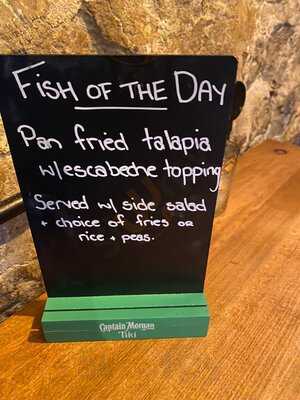 FISH OF THE DAY
Pan fried talapia
w/escabeche topping
Served w/ side salad
+ choice of fries or
rice + peas.
Captain Morgan
Tiki